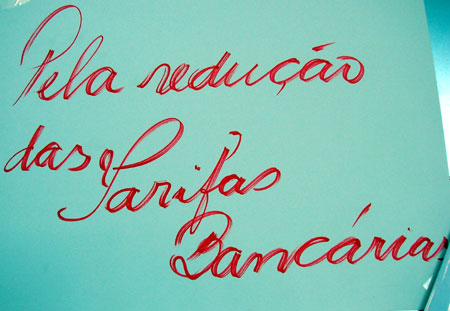 Pela redução
das Tarifas
Bancárias